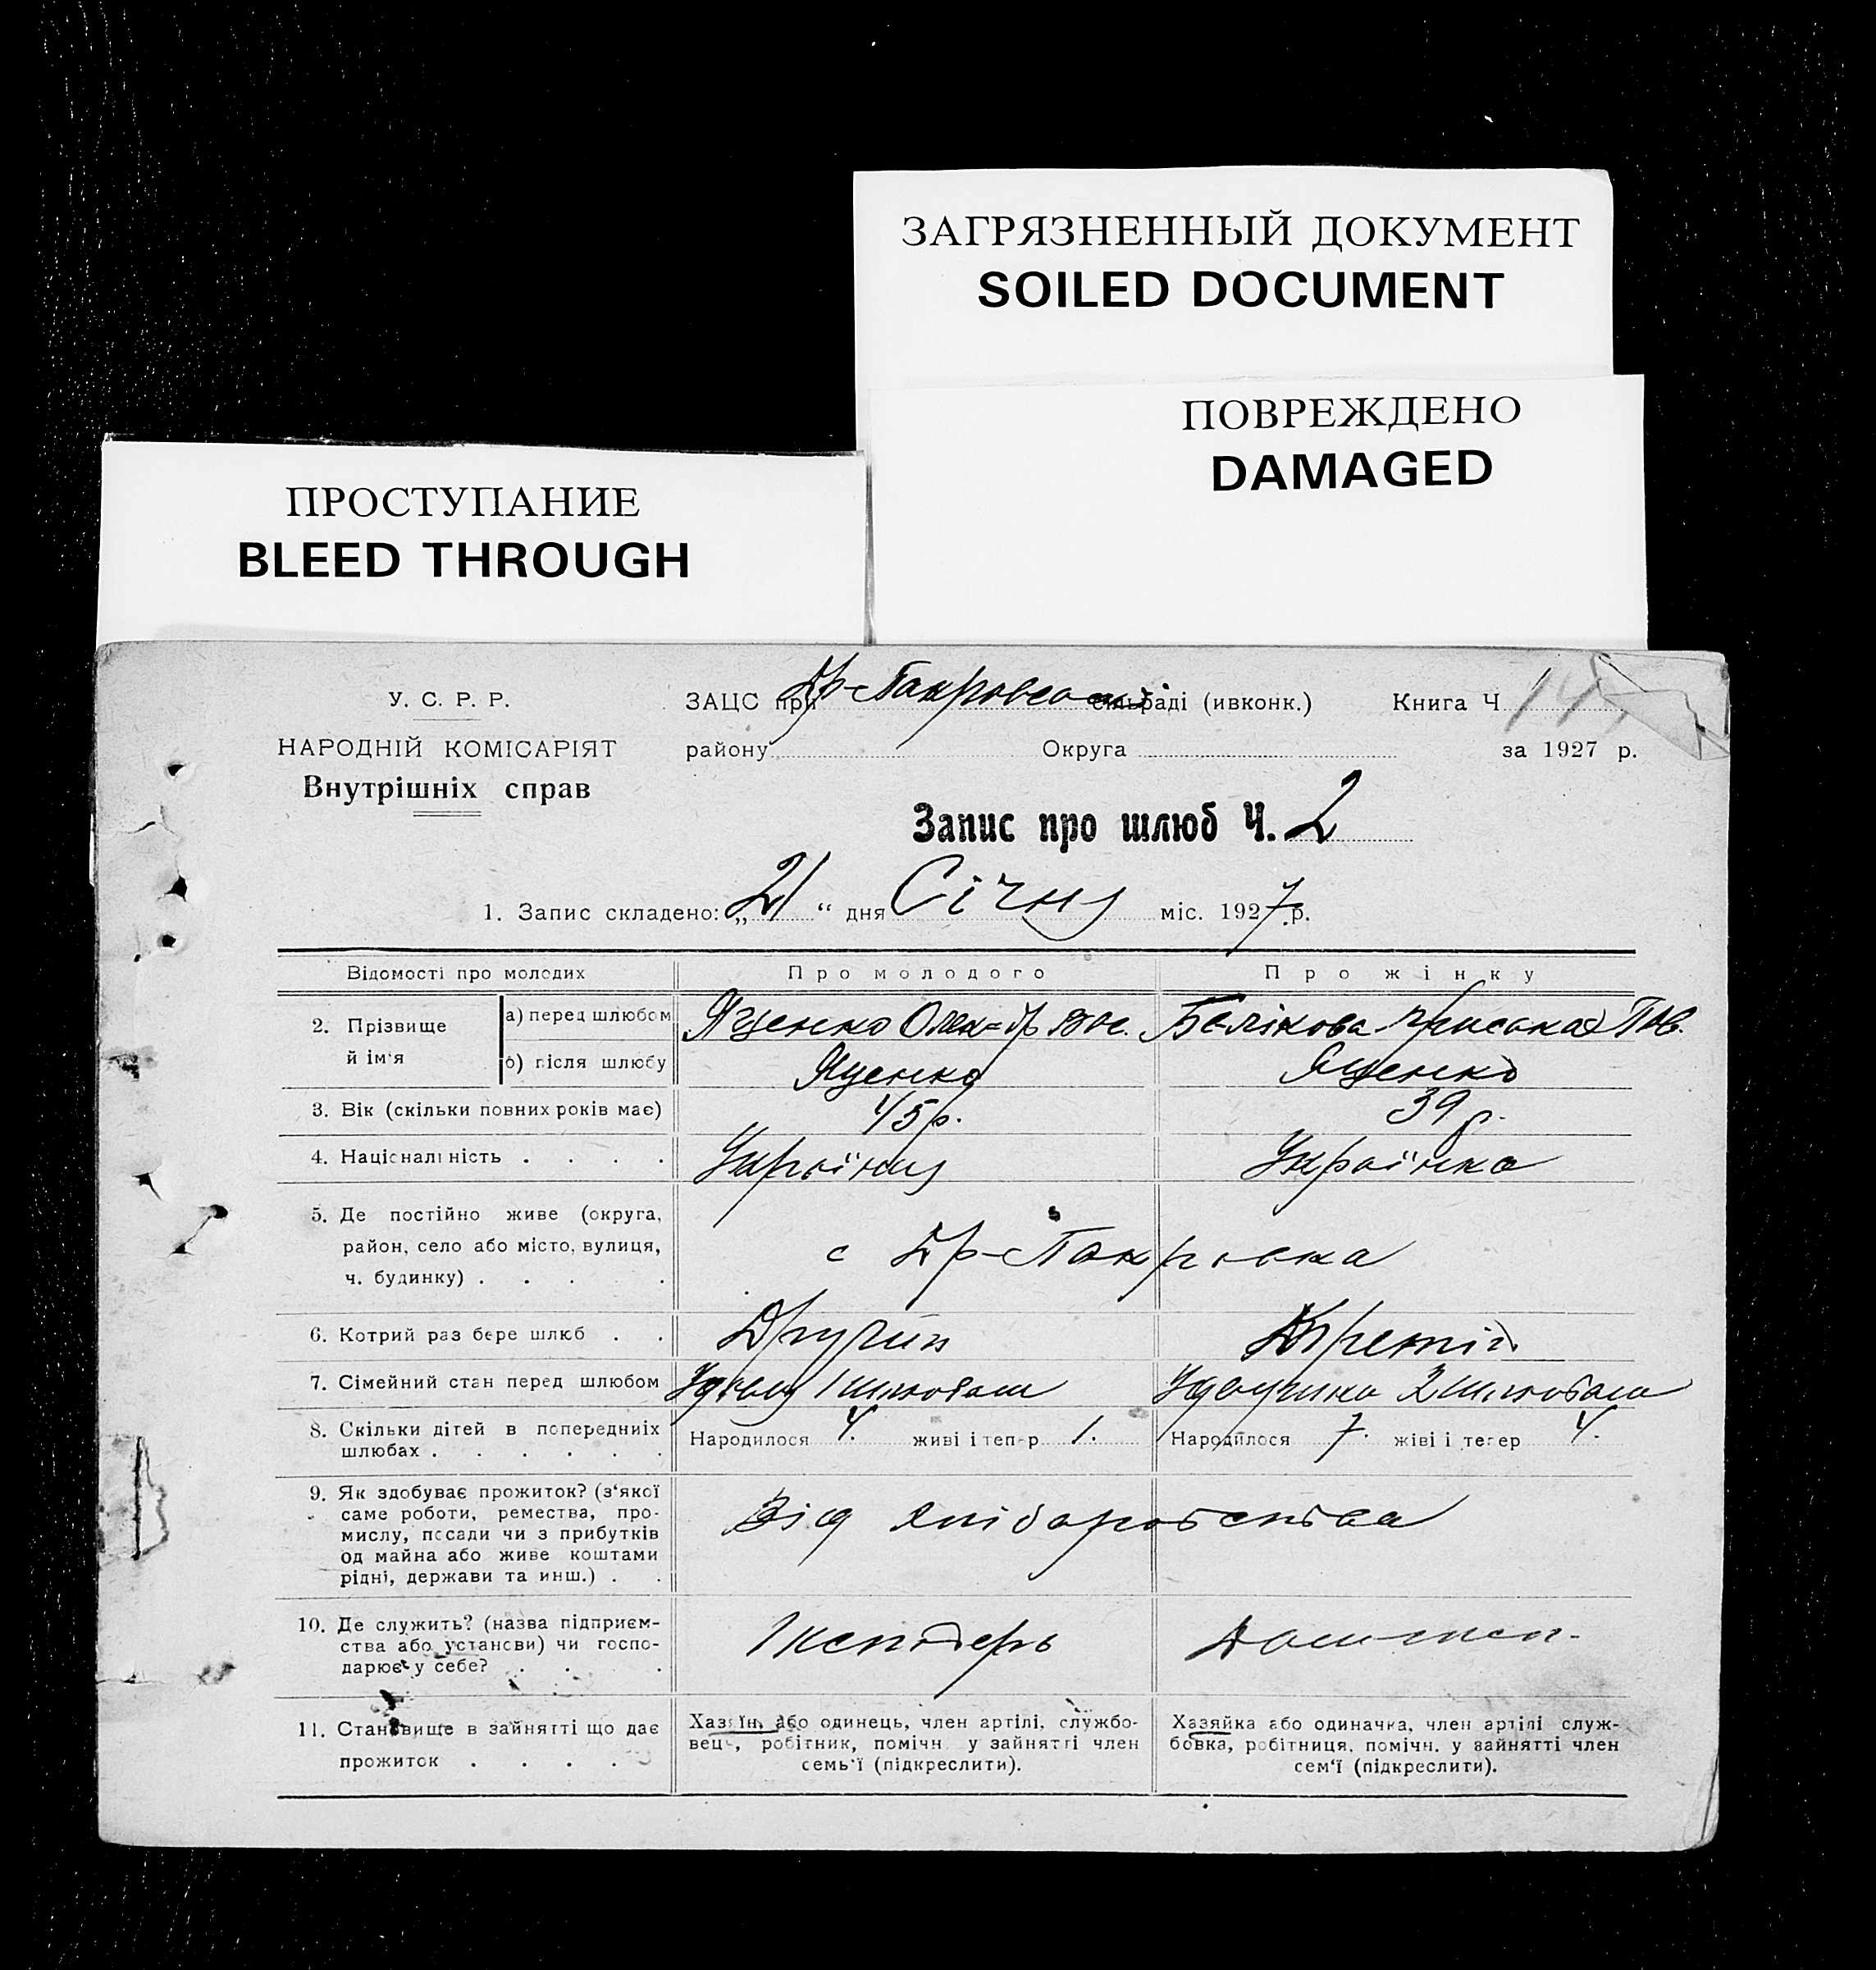 ЗАГРЯЗНЕННЫЙ ДОКУМЕНТ
SOILED DOCUMENT
ПОВРЕЖДЕНО
DAMAGED
ПРОСТУПАНИЕ
BLEED THROUGH
У. С. Р. Р.
НАРОДНІЙ КОМІСАРІЯТ
Внутрішніх справ
ЗАЦС при сільраді (ивконк.) Книга Ч 14
району Округа за 1927 р.
Запис про шлюб Ч. 2
1. Запис складено: „21“ дня Січня міс. 1927 р.
Відомості про молодих Про молодого Про жінку
2. Прізвище й ім'я
а) перед шлюбом Яценко Белікова
б) після шлюбу Яценко Яценко
3. Вік (скільки повних років має) 45 р. 39 р.
4. Національність . . . . Українец Українка
5. Де постійно живе (округа,
район, село або місто, вулиця,
ч. будинку) . . . .
с Др-Покровка
6. Котрий раз бере шлюб . . Другий Третій
7. Сімейний стан перед шлюбом 1 шлюбом 2 шлюбом
8. Скільки дітей в попередніх
шлюбах . . . . . .
Народилося 4. живі і тепер 1. Народилося 7. жіві і тепер 4.
9. Як здобуває прожиток? (з'якої
саме роботи, ремества, про-
мислу, посади чи з прибутків
од майна або живе коштами
рідні, держави та инш.) . .
Від хліборобства
10. Де служить? (назва підприєм-
ства або установи) чи госпо-
дарює у себе? . . .
11. Становище в зайнятті що дає
прожиток . . . . .
Хазяїн, або одинець, член артілі, службо-
вець, робітник, помічн. у зайнятті член
семь'ї (підкреслити).
Хазяйка або одиначка, член артілі служ-
бовка, робітниця, помічн. у зайнятті член
сем'ї (підкреслити).